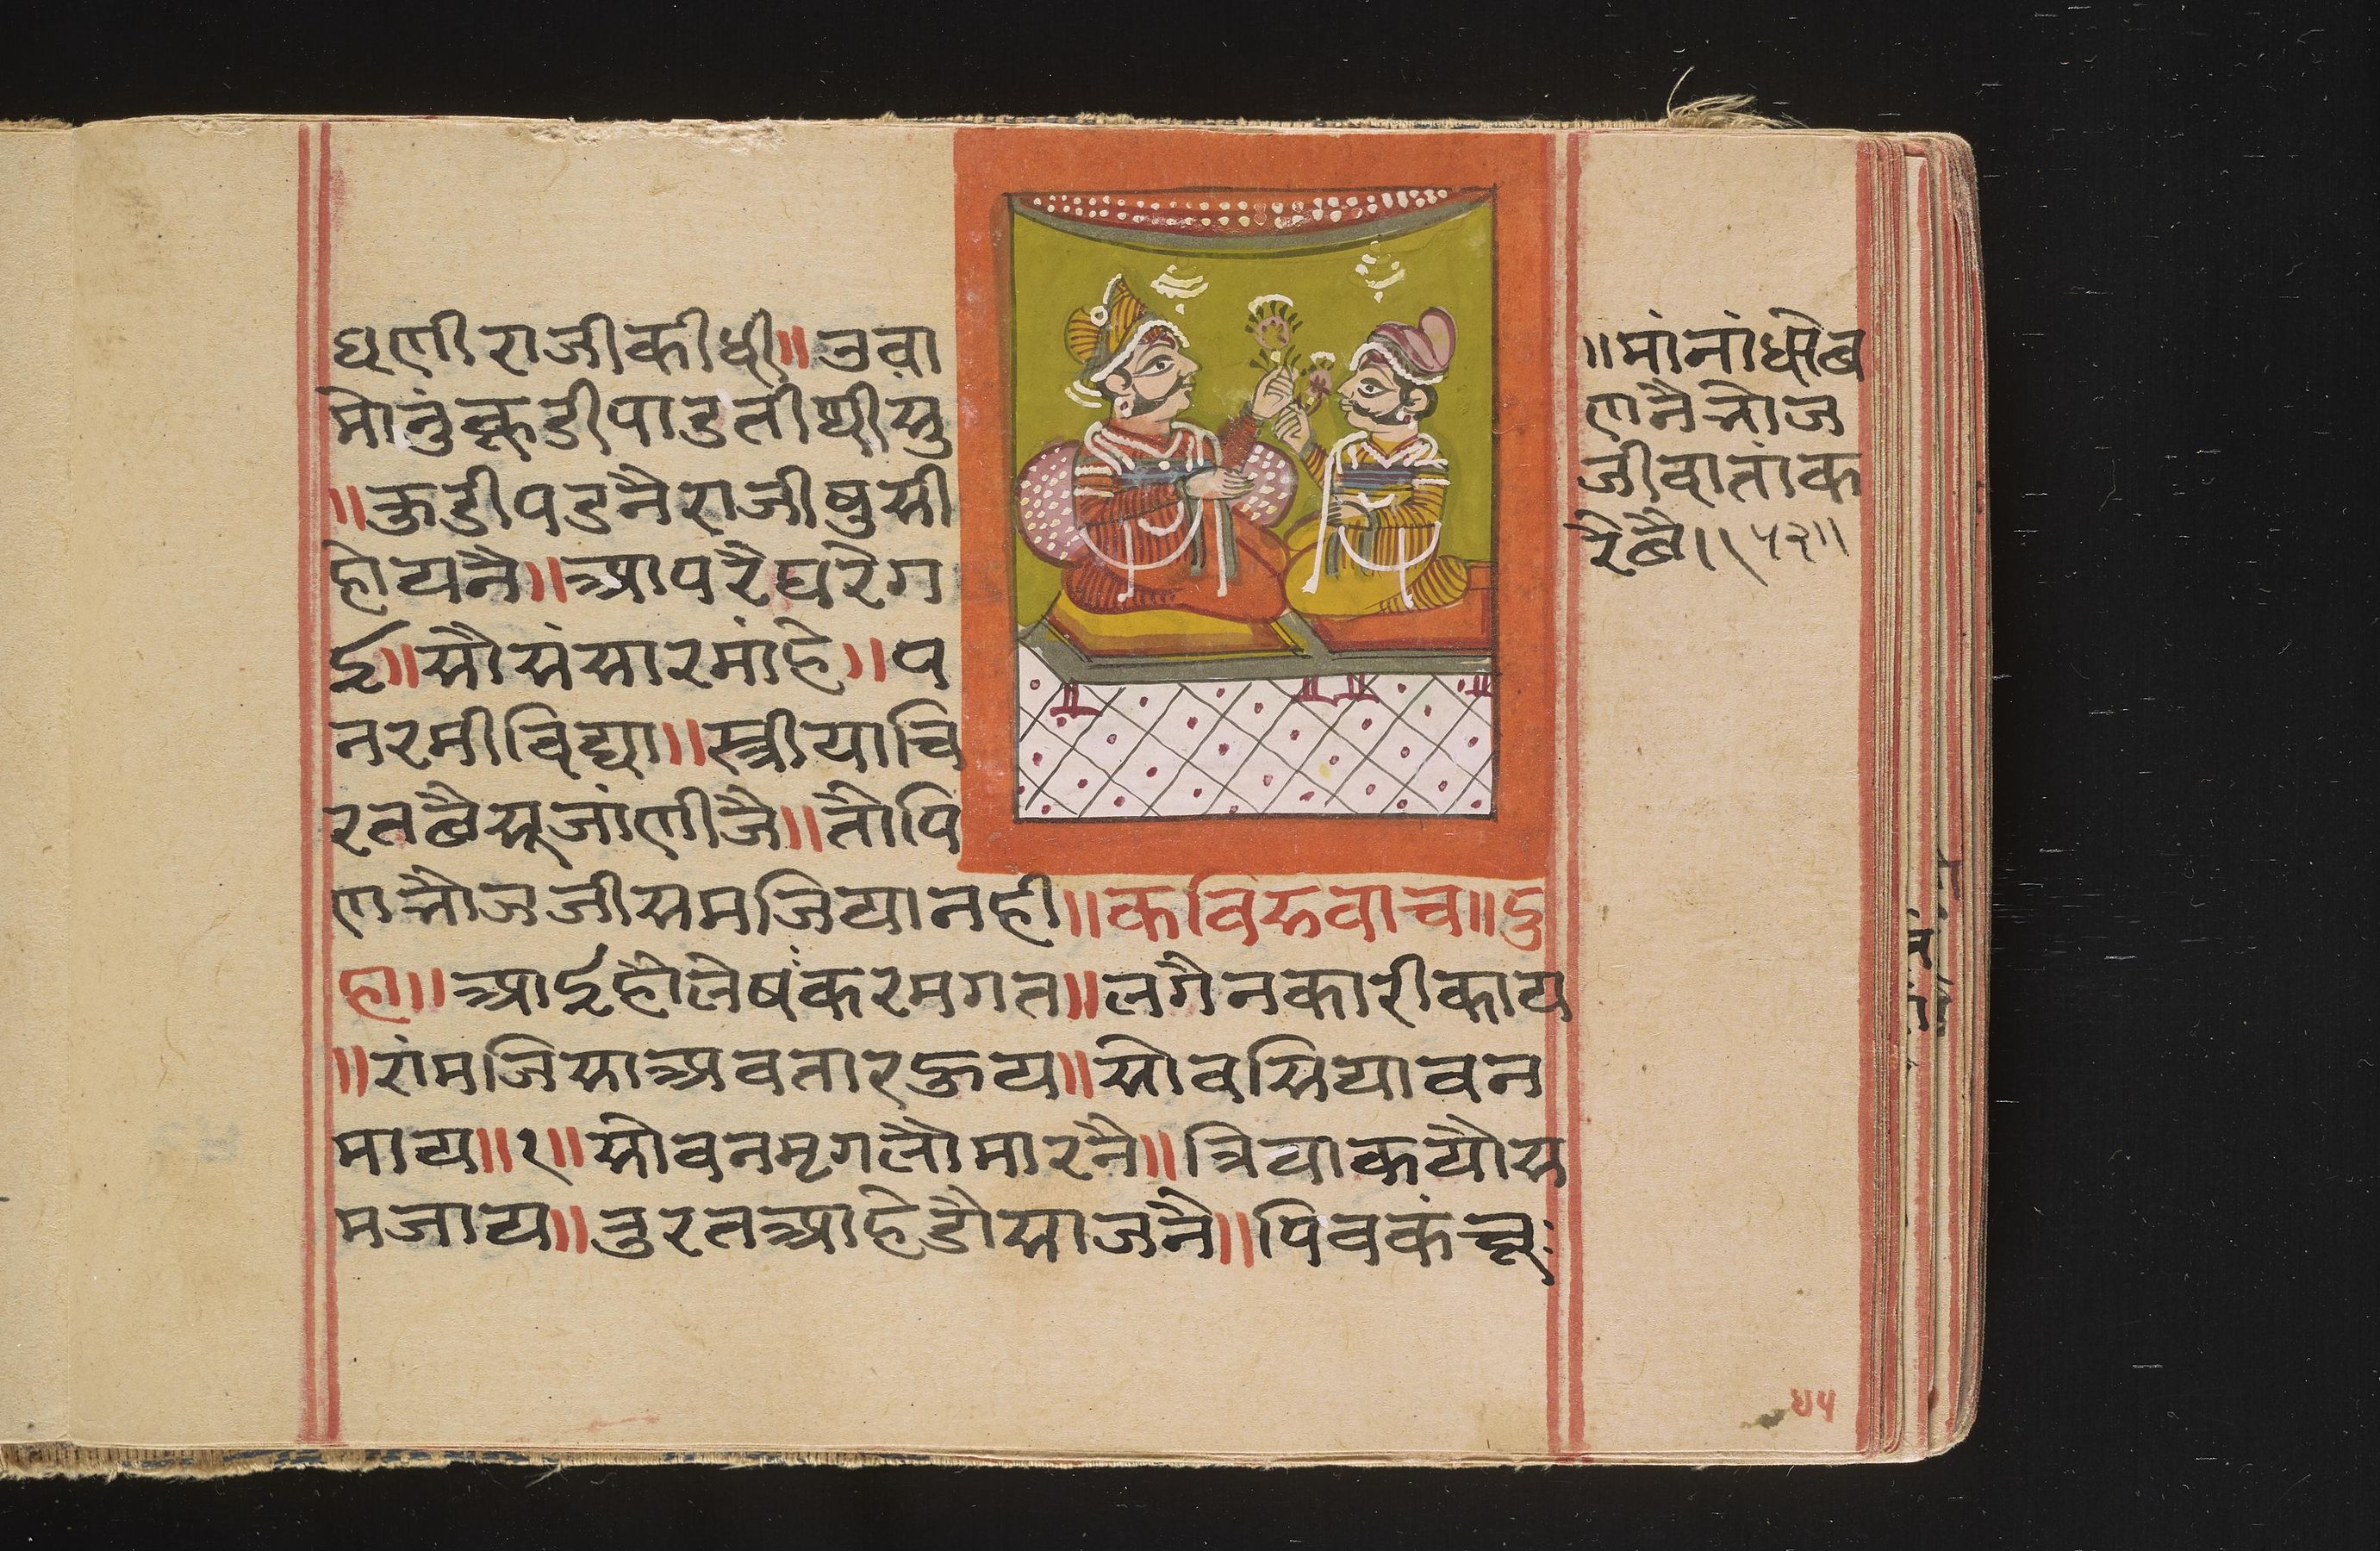 घणी राजी कीधी॥ उवा
मोनुं कूडी पाडती थी सु
॥कुडी पडनै राजी षुसी
होयनै॥ आपरै घरे ग
ई॥ सौ संसार मांहे॥ प
नरमी विद्या॥ स्त्रीया चि
रत छै सू जांणीजै॥ तौ पि
ण भोजजी समजिया नही॥ कविस वाच॥ दु
हा॥ आई हौ लेषं करमगत॥ लगै न कारी काय
॥रांम जिसा अवतार कुय॥ सो वसिया वन
माय॥१॥ सोवन मृग लौ मारनै॥ त्रिया कयौ स
मजाय॥ तुरत आहेडौ साजनै॥ पिव कंचू:
॥मांनां धोब
ण नै भोज
जी वातां क
रै छै॥१५२॥
७५